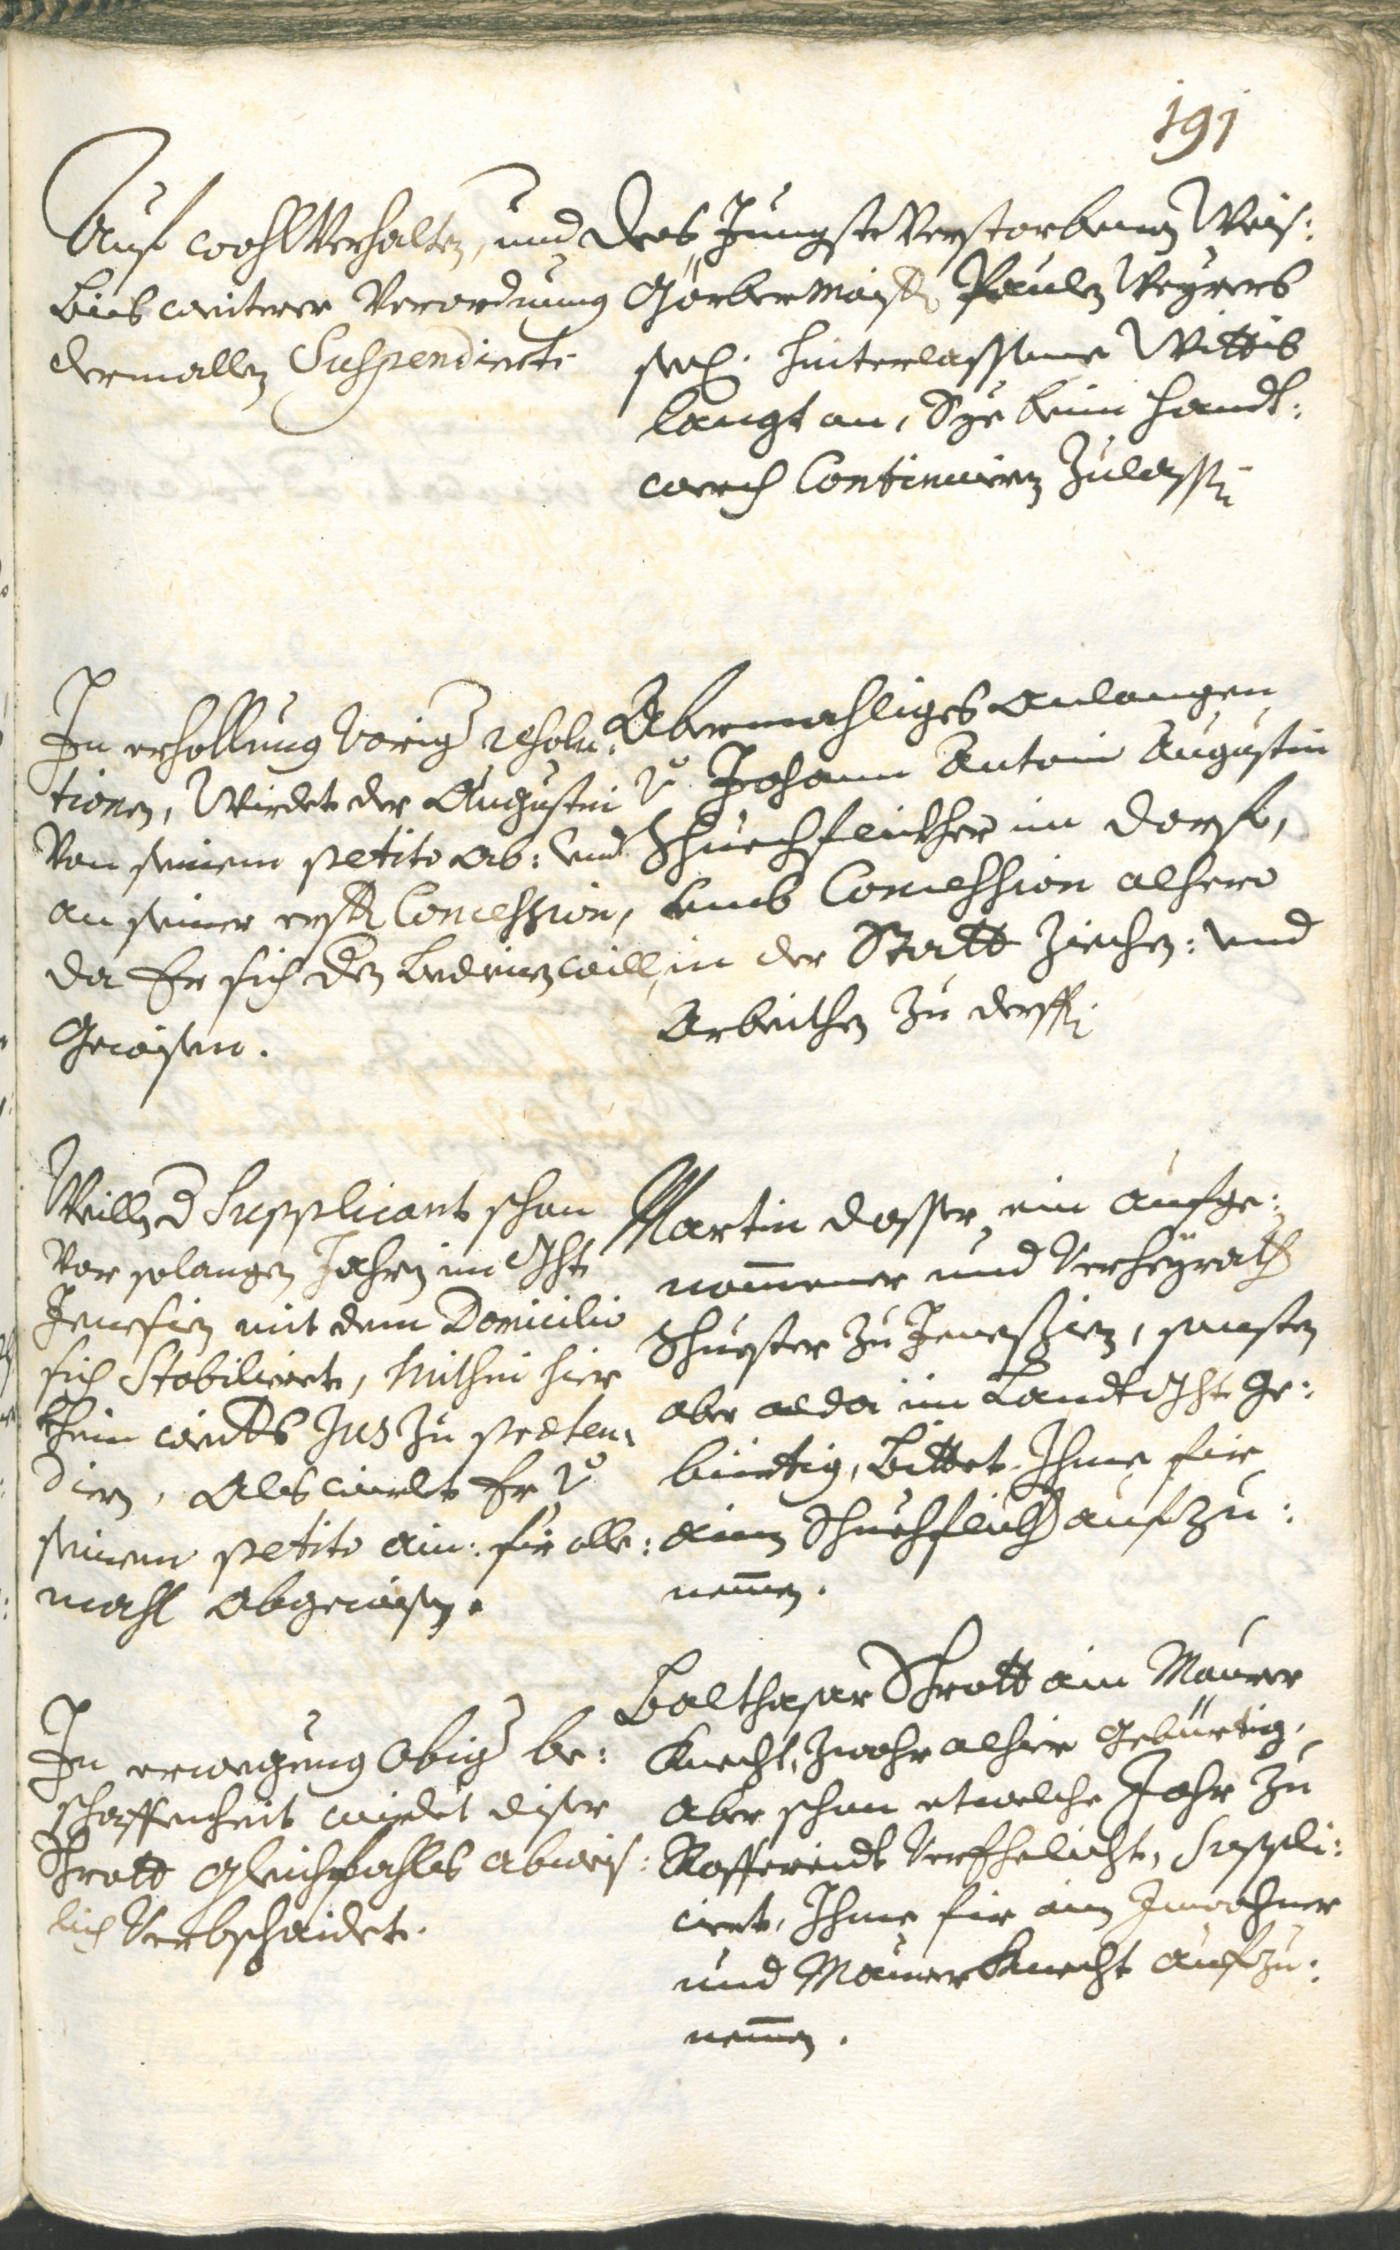 191
Auf wohl Verhalten, und
biß weiterer Verordnung
dermallen Suspendiert.
Des Jüngst Verstorbenen Weis:
Görber Maist. Paulen Mayrers
seel. hinterlassene Wittib
langt an, Sye beim Handt:
werch Continuiren Zulassen
In erhollung Vorig. resolu:
tionen, Wirdet der Augustin
Von seinem petito ab: und
an seiner erst. Concession,
da Er sich deren bedienen will,
Gewisen.
Abermahliges anlangen
Johann Antoni Augustin
Schuechflickher im Dorf,
umb Concession alhero
in der Statt Ziechen: und
Arbeithen Zu derffen
Weillen d. Supplicant schon
Vor solangen Jahren im Ght.
Jenesien mit dem Domicilio
sich Stabiliert, Mithin hier
khein Jus Zu præten:
dieren, Als wirdt Er
seinem petito ain: für alle:
mahl Abgewisen.
Martin Dosser, ein aufge:
nommener und Verheyrath.
Schuester Zu Jenessien, sonsten
aber alda im Landtght. ge:
bürtig, Bittet Ihme für
ainen Schuechflickh. aufZu:
nemmen.
In erwegung Obig. be:
schaffenheit wirdet diser
Schrott gleichfahls abweis:
lich Verbschaidet.
Balthasar Schrott ain Maurer
Knecht, Zwahr alhier Gebürtig,
aber schon etwelche Jahr Zu
Raffereidt Verehelicht, Suppli:
ciert, Ihme für ain Inwohner
und Maurer Knecht aufzu:
nemmen.